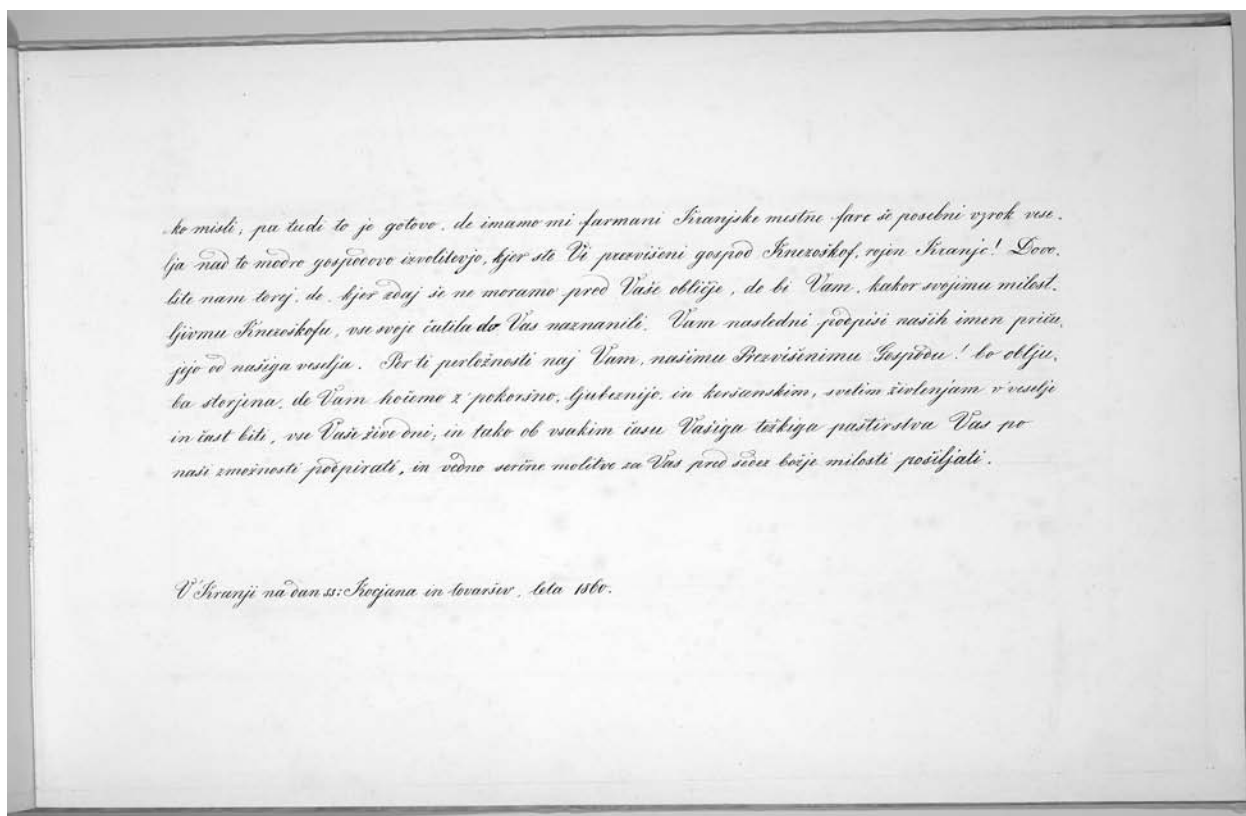 ko misli; pa tudi to je gotovo, de imamo mi farmani Kranjske mestne fare še posebni vzrok vese-
lja nad to modro gospodovo izvolitevjo, kjer ste Vi prezvišeni gospod Knezoškof, rojen Kranjc! Dovo-
lite nam torej, de, kjer zdaj še ne moramo pred Vaše obličje, de bi Vam, kakor svojimu milost-
ljivmu Knezoškofu, vse svoje čutila do Vas naznanili, Vam nasledni podpisi naših imen priču-
jejo od našiga veselja. Per ti perložnosti naj Vam, našimu Prezvišenimu Gospodu! bo oblju-
ba storjena, de Vam hočemo z' pokoršno, ljubeznijo, in keršenskim, svetim življenjam v' veselje
in čast biti, vse Vaše žive dni; in tako ob vsakim času Vašiga težkiga pastirstva Vas po
naši zmožnosti podpirati, in vedno serčne molitve za Vas pred sedež božje milosti pošiljati.
V' Kranji na dan ss: Kocjana in tovaršev, leta 1860.